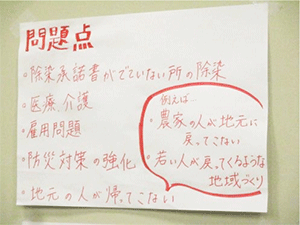 問題点
・除染承諾書がでていない所の除染
・医療、介護
・雇用問題
・防災対策の強化
・地元の人が帰ってこない
例えば…
・農家の人が地元に
戻ってこない
・若い人が戻ってくるような
地域づくり